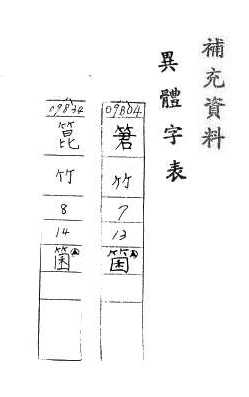 補充資料
異體字表
09B04
䇹
竹
7
13
箘
箟
竹
8
14
箘